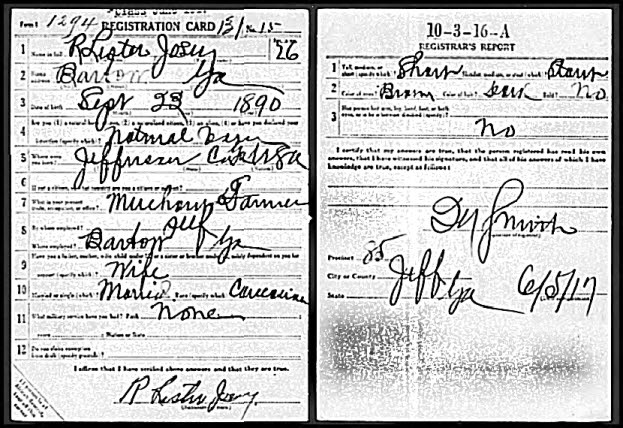 Form 1 1294 REGISTRATION CARD No. 15
1 Name in full R Lester Josey 26
2 Bartow Ga
3 Date of birth Sept 23 1890
4 Natural born
5 Where were you born? Jefferson Co Ga
6 If not a citizen, of what country are you a citizen or subject?
7 What is your present trade, occupation, or office? Merchant Farmer
8 By whom employed? Self
Where employed? Bartow Ga
9 Have you a father, mother, wife, child under 12, or a sister or brother under 12, solely dependent on you for
support (specify which)? Wife
10 Married or single (which)? Married Race (specify which)? Caucasian
11 What military service have you had? Rank None
years Nation or State
12 Do you claim exemption
from draft (specify grounds)?
I affirm that I have verified above answers and that they are true.
R Lester Josey
(Signature or mark)
10-3-16-A
REGISTRAR'S REPORT
1 Tall, medium, or short (specify which)? Short Slender, medium, or stout (which)? Stout
2 Color of eyes? Brown Color of hair? Dark Bald? No
3 Has person lost arm, leg, hand, foot, or both
eyes, or is he otherwise disabled (specify)?
No
I certify that my answers are true, that the person registered has read his own
answers, that I have witnessed his signature, and that all of his answers of which I have
knowledge are true, except as follows:
Smith
Precinct 85
City or County Jeff
State Ga 6/5/17